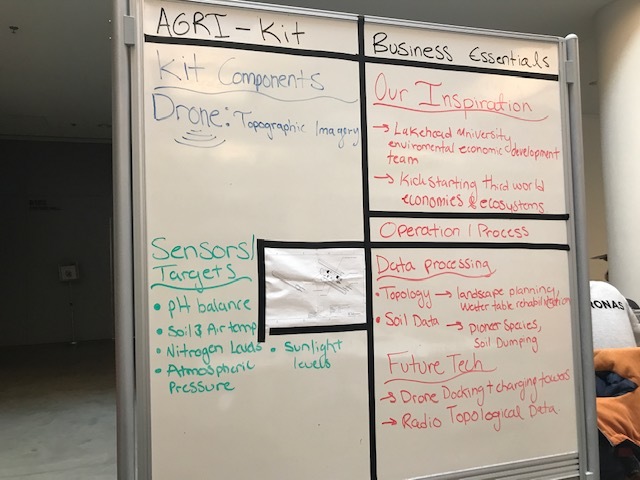 AGRI-Kit
Kit Components
Drone: Topographic Imagery
Sensors/
Targets
• pH balance
• Soil & Air temp
• Nitrogen Levels
• Atmospheric
Pressure
• Sunlight
levels
Business Essentials
Our Inspiration
→ Lakehead University
enviromental economic development
team
→ Kickstarting third world
economies & ecosystems
Operation / Process
Data processing
• Topology → landscape planning,
Water table rehabilitation
• Soil Data → pioneer Species,
Soil Dumping
Future Tech
→ Drone Docking + charging towers
→ Radio Topological Data.
ONAS